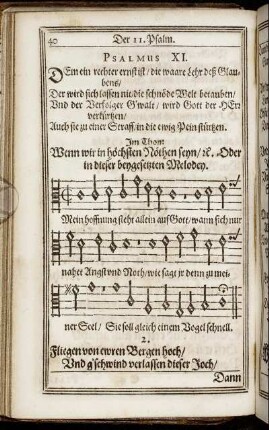 40 Der 11. Psalm.
PSALMUS XI.
DEm ein rechter ernst ist / die waare Lehr deß Glau-
bens /
Der wird sich lassen nit / die schnöde Welt betauben /
Vnd der Verfolger G'walt / wird Gott der HErr
verkürtzen /
Auch sie zu einer Straff / in die ewig Pein stürtzen.
Im Thon:
Wenn wir in höchsten Nöthen seyn / ꝛc. Oder
in dieser beygesetzten Melodey.
Mein hoffnung steht allein auf Gott / wann sich nur
nahet Angst vnd Noth / wie sagt jr denn zu mei-
ner Seel / Sie soll gleich einem Vogel schnell.
2.
Fliegen von ewren Bergen hoch /
Vnd g'schwind verlassen dieser Joch /
Dann